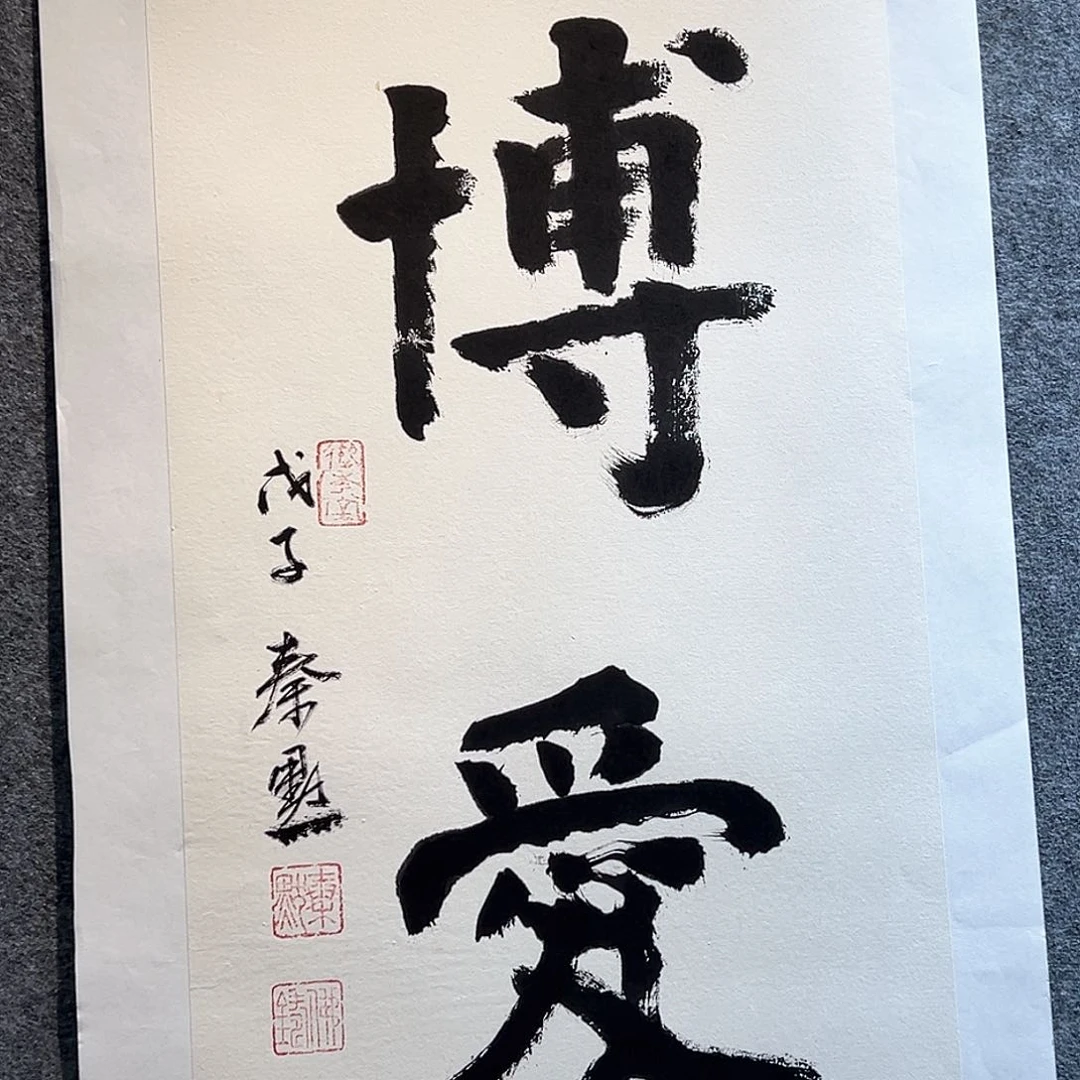 博愛
戊子 秦勳